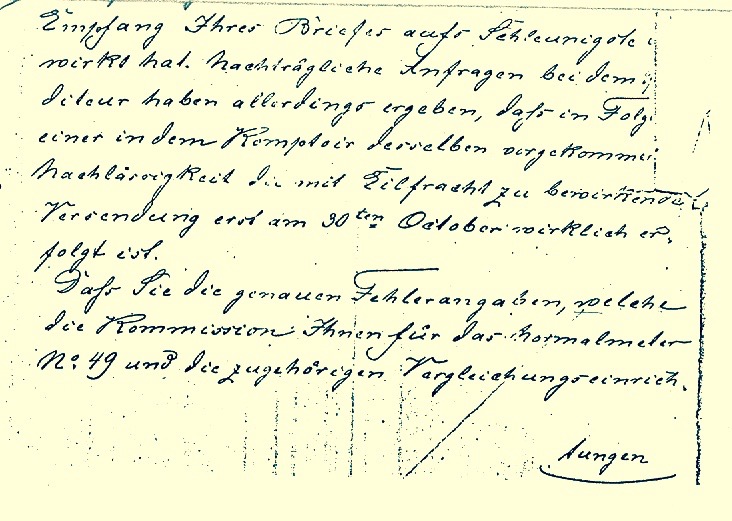 Empfang Ihres Briefes aufs Schleunigste
wirkt hat. Nachträgliche Anfragen bei dem
diteur haben allerdings ergeben, daſs in Folge
einer in dem Komptoir desselben vorgekomme
Nachlässigkeit die mit Eilfracht zu bewirkende
Versendung erst am 30ten October wirklich er-
folgt ist.
Daſs Sie die genauen Fehlerangaben, welche
die Kommission Ihnen für das Normalmeter
No. 49 und die zugehörigen Vergleichungseinrich-
tungen